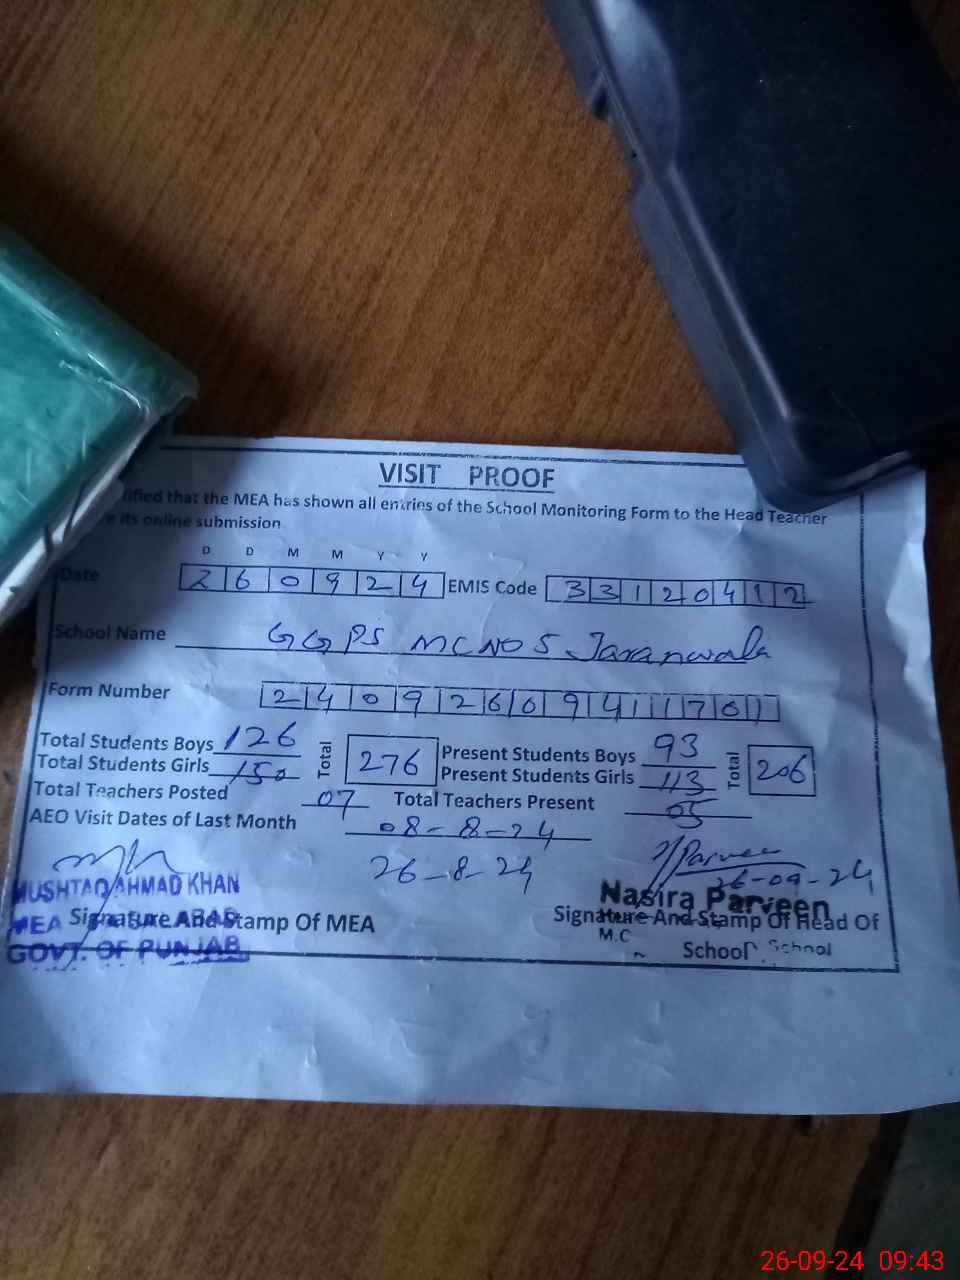 VISIT PROOF
ified that the MEA has shown all entries of the School Monitoring Form to the Head Teacher
its online submission
D D M M Y Y
Date 2 6 0 9 2 4 EMIS Code 3 3 1 2 0 4 1 2
School Name GGPS MC NO 5 Jaranwala
Form Number 2 4 0 9 2 6 0 9 4 1 1 7 0 1
Total Students Boys 126 Total 276 Present Students Boys 93 Total 206
Total Students Girls 150 Present Students Girls 113
Total Teachers Posted 07 Total Teachers Present 05
AEO Visit Dates of Last Month 08-8-24
26-8-24
N Parveen
26-09-24
MUSHTAQ AHMAD KHAN
Nasira Parveen
MEA
Signature And Stamp Of MEA
Signature And Stamp Of Head Of
M.C
School School
GOVT. OF PUNJAB
26-09-24 09:43